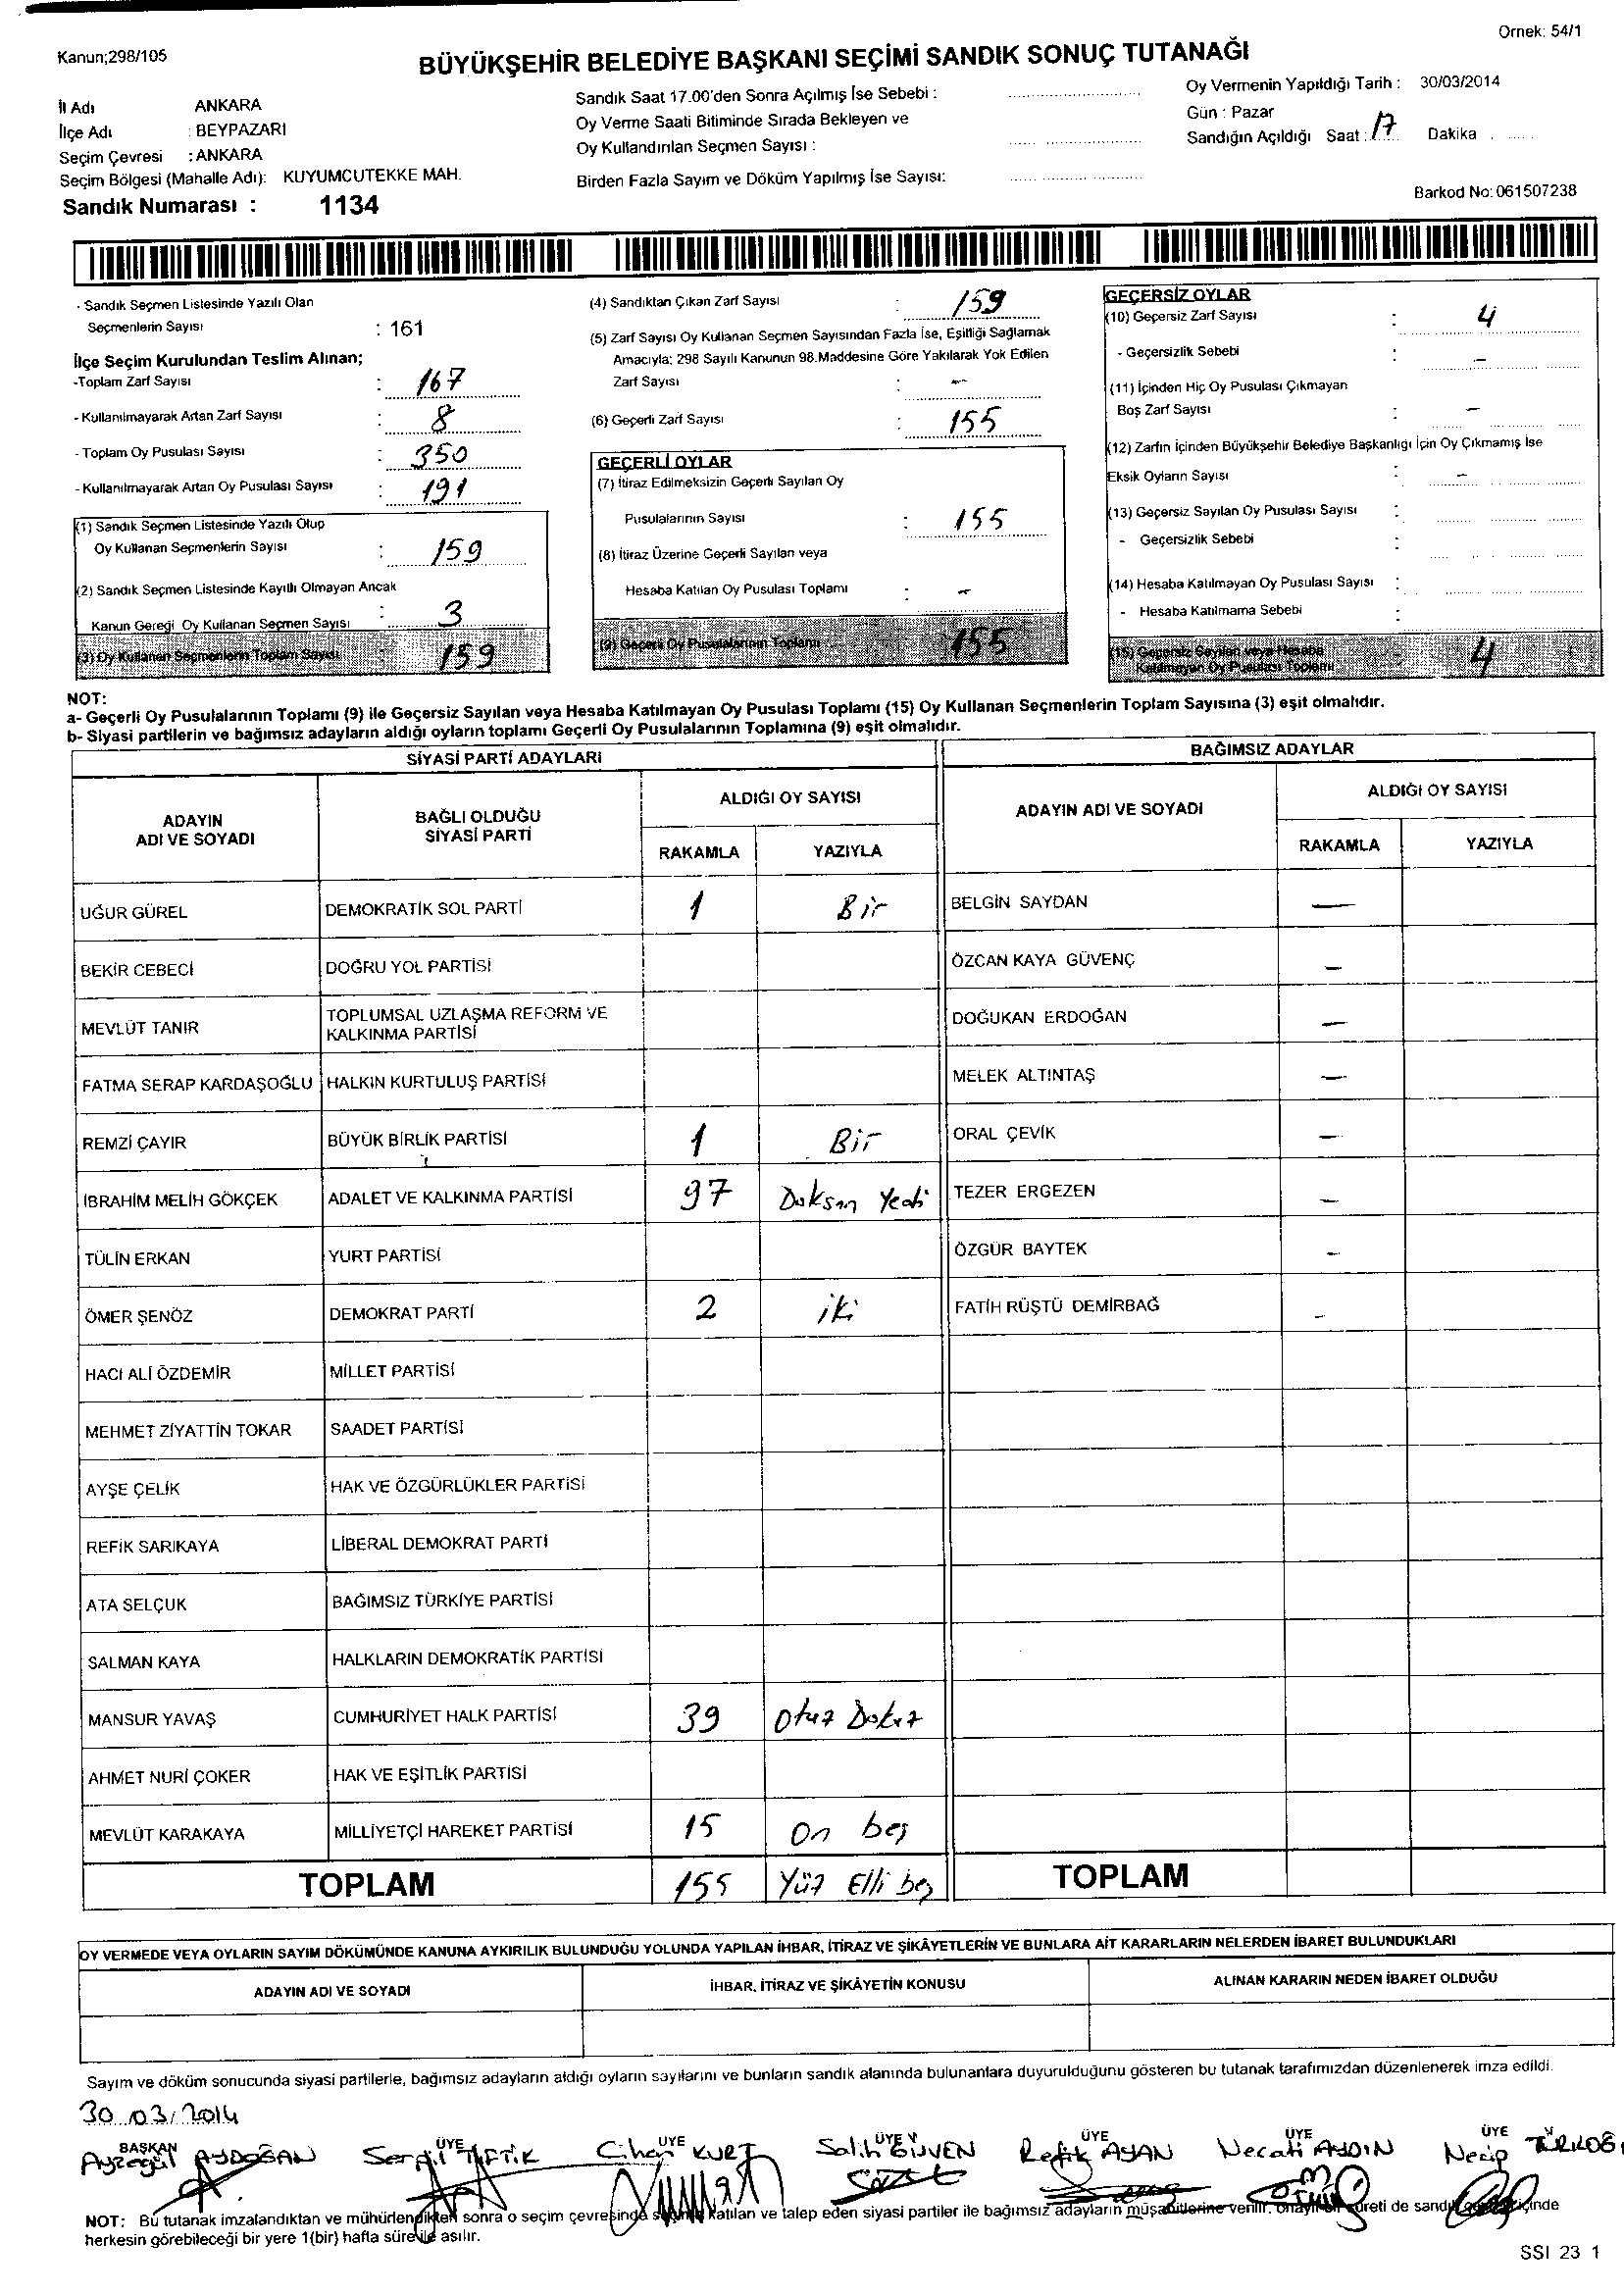 Ornek: 54/1
Kanun;298/105
BÜYÜKŞEHİR BELEDİYE BAŞKANI SEÇİMİ SANDIK SONUÇ TUTANAĞI
İl Adı ANKARA
İlçe Adı : BEYPAZARI
Seçim Çevresi : ANKARA
Seçim Bölgesi (Mahalle Adı): KUYUMCUTEKKE MAH.
Sandık Numarası : 1134
Sandık Saat 17.00'den Sonra Açılmış İse Sebebi :
Oy Verme Saati Bitiminde Sırada Bekleyen ve
Oy Kullandırılan Seçmen Sayısı :
Birden Fazla Sayım ve Döküm Yapılmış İse Sayısı:
Oy Vermenin Yapıldığı Tarih : 30/03/2014
Gün : Pazar
Sandığın Açıldığı Saat : 17 Dakika
Barkod No: 061507238
- Sandık Seçmen Listesinde Yazılı Olan
Seçmenlerin Sayısı : 161
İlçe Seçim Kurulundan Teslim Alınan;
-Toplam Zarf Sayısı : 167
- Kullanılmayarak Artan Zarf Sayısı : 8
- Toplam Oy Pusulası Sayısı : 350
- Kullanılmayarak Artan Oy Pusulası Sayısı : 191
(1) Sandık Seçmen Listesinde Yazılı Olup
Oy Kullanan Seçmenlerin Sayısı : 159
(2) Sandık Seçmen Listesinde Kayıtlı Olmayan Ancak
Kanun Gereği Oy Kullanan Seçmen Sayısı : 3
(3) Oy Kullanan Seçmenlerin Toplam Sayısı : 159
(4) Sandıktan Çıkan Zarf Sayısı : 159
(5) Zarf Sayısı Oy Kullanan Seçmen Sayısından Fazla İse, Eşitliği Sağlamak
Amacıyla; 298 Sayılı Kanunun 98.Maddesine Göre Yakılarak Yok Edilen
Zarf Sayısı : -
(6) Geçerli Zarf Sayısı : 155
GEÇERLİ OYLAR
(7) İtiraz Edilmeksizin Geçerli Sayılan Oy
Pusulalarının Sayısı : 155
(8) İtiraz Üzerine Geçerli Sayılan veya
Hesaba Katılan Oy Pusulası Toplamı : -
(9) Geçerli Oy Pusulalarının Toplamı : 155
GEÇERSİZ OYLAR
(10) Geçersiz Zarf Sayısı : 4
- Geçersizlik Sebebi : -
(11) İçinden Hiç Oy Pusulası Çıkmayan
Boş Zarf Sayısı : -
(12) Zarfın İçinden Büyükşehir Belediye Başkanlığı İçin Oy Çıkmamış İse
Eksik Oyların Sayısı : -
(13) Geçersiz Sayılan Oy Pusulası Sayısı :
- Geçersizlik Sebebi :
(14) Hesaba Katılmayan Oy Pusulası Sayısı :
- Hesaba Katılmama Sebebi :
(15) Geçersiz Sayılan veya Hesaba
Katılmayan Oy Pusulası Toplamı 4
NOT:
a- Geçerli Oy Pusulalarının Toplamı (9) ile Geçersiz Sayılan veya Hesaba Katılmayan Oy Pusulası Toplamı (15) Oy Kullanan Seçmenlerin Toplam Sayısına (3) eşit olmalıdır.
b- Siyasi partilerin ve bağımsız adayların aldığı oyların toplamı Geçerli Oy Pusulalarının Toplamına (9) eşit olmalıdır.
SİYASİ PARTİ ADAYLARI BAĞIMSIZ ADAYLAR
ADAYIN ADI VE SOYADI BAĞLI OLDUĞU SİYASİ PARTİ ALDIĞI OY SAYISI ADAYIN ADI VE SOYADI ALDIĞI OY SAYISI
RAKAMLA YAZIYLA RAKAMLA YAZIYLA
UĞUR GÜREL DEMOKRATİK SOL PARTİ 1 Bir BELGİN SAYDAN -
BEKİR CEBECİ DOĞRU YOL PARTİSİ ÖZCAN KAYA GÜVENÇ -
MEVLÜT TANIR TOPLUMSAL UZLAŞMA REFORM VE KALKINMA PARTİSİ DOĞUKAN ERDOĞAN -
FATMA SERAP KARDAŞOĞLU HALKIN KURTULUŞ PARTİSİ MELEK ALTINTAŞ -
REMZİ ÇAYIR BÜYÜK BİRLİK PARTİSİ 1 Bir ORAL ÇEVİK -
İBRAHİM MELİH GÖKÇEK ADALET VE KALKINMA PARTİSİ 97 Doksan Yedi TEZER ERGEZEN -
TÜLİN ERKAN YURT PARTİSİ ÖZGÜR BAYTEK -
ÖMER ŞENÖZ DEMOKRAT PARTİ 2 iki FATİH RÜŞTÜ DEMİRBAĞ -
HACI ALİ ÖZDEMİR MİLLET PARTİSİ
MEHMET ZİYATTİN TOKAR SAADET PARTİSİ
AYŞE ÇELİK HAK VE ÖZGÜRLÜKLER PARTİSİ
REFİK SARIKAYA LİBERAL DEMOKRAT PARTİ
ATA SELÇUK BAĞIMSIZ TÜRKİYE PARTİSİ
SALMAN KAYA HALKLARIN DEMOKRATİK PARTİSİ
MANSUR YAVAŞ CUMHURİYET HALK PARTİSİ 39 Otuz Dokuz
AHMET NURİ ÇOKER HAK VE EŞİTLİK PARTİSİ
MEVLÜT KARAKAYA MİLLİYETÇİ HAREKET PARTİSİ 15 On beş
TOPLAM 155 Yüz Elli beş TOPLAM
OY VERMEDE VEYA OYLARIN SAYIM DÖKÜMÜNDE KANUNA AYKIRILIK BULUNDUĞU YOLUNDA YAPILAN İHBAR, İTİRAZ VE ŞİKÂYETLERİN VE BUNLARA AİT KARARLARIN NELERDEN İBARET BULUNDUKLARI
ADAYIN ADI VE SOYADI İHBAR, İTİRAZ VE ŞİKÂYETİN KONUSU ALINAN KARARIN NEDEN İBARET OLDUĞU
Sayım ve döküm sonucunda siyasi partilerle, bağımsız adayların aldığı oyların sayılarını ve bunların sandık alanında bulunanlara duyurulduğunu gösteren bu tutanak tarafımızdan düzenlenerek imza edildi.
30.03.2014
BAŞKAN ÜYE ÜYE ÜYE ÜYE ÜYE ÜYE
Ayşegül AYDOĞAN Cihan KURT Salih GÜVEN Refik AYAN Necati AYDIN Necip
NOT: Bu tutanak imzalandıktan ve mühürlendikten sonra o seçim çevresinde seçime katılan ve talep eden siyasi partiler ile bağımsız adayların müşahitlerine verilir, onaylı bir sureti de sandık içinde
herkesin görebileceği bir yere 1(bir) hafta süre ile asılır.
SSI 23 1